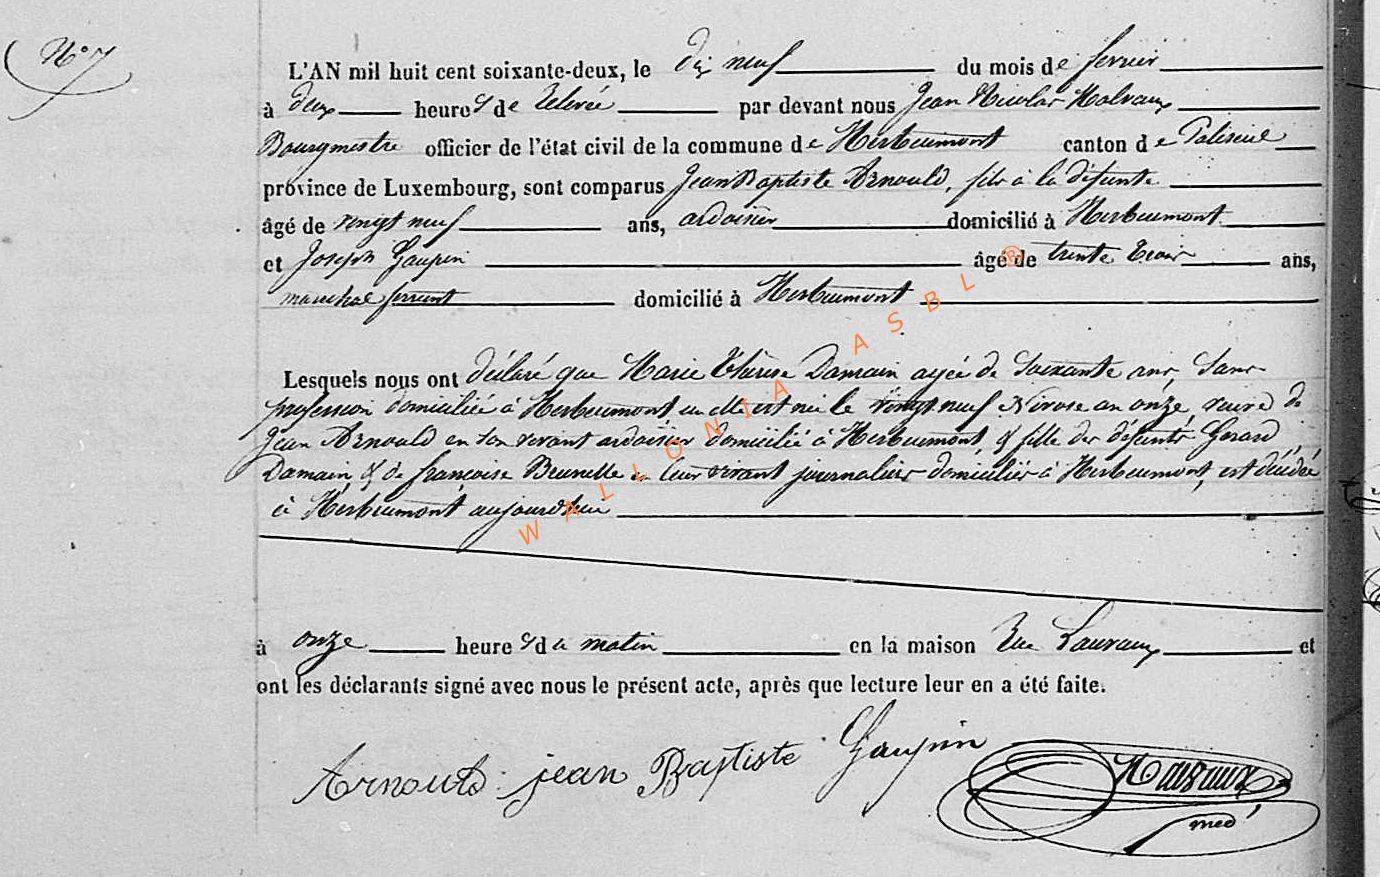 N° 7
L'AN mil huit cent soixante-deux, le dix neuf du mois de fevrier
à deux heures de relevée par devant nous Jean Nicolas Halvaux
Bourgmestre officier de l'état civil de la commune de Herbeumont canton de Paliseul
province de Luxembourg, sont comparus Jean Baptiste Arnould, fils à la défunte
âgé de vingt neuf ans, ardoisier domicilié à Herbeumont
et Joseph Gaupin âgé de trente trois ans,
marechal ferrant domicilié à Herbeumont
Lesquels nous ont déclaré que Marie Thérèse Damain agée de soixante ans, sans
profession domiciliée à Herbeumont où elle est née le vingt neuf Nivose an onze, veuve de
Jean Arnould en son vivant ardoisier domicilié à Herbeumont, & fille des défunts Gerard
Damain & de françoise Brunelle en leur vivant journaliers domiciliés à Herbeumont, est décédée
à Herbeumont aujourdhui
à onze heures du matin en la maison Rue et
ont les déclarants signé avec nous le présent acte, après que lecture leur en a été faite.
Arnould jean Baptiste Gaupin
WALLONIA ASBL ®